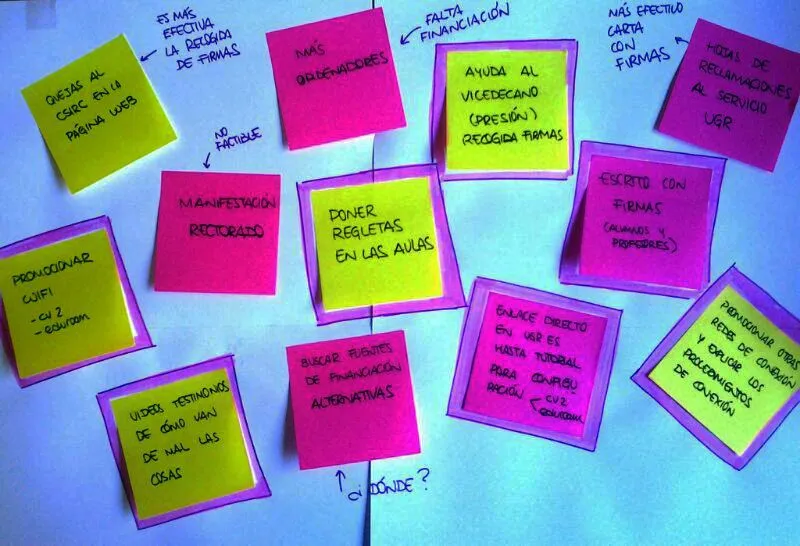 ES MÁS
EFECTIVA
LA RECOGIDA
DE FIRMAS
QUEJAS AL
CSIRC EN LA
PÁGINA WEB
MÁS
ORDENADORES
FALTA
FINANCIACIÓN
AYUDA AL
VICEDECANO
(PRESIÓN)
RECOGIDA FIRMAS
MÁS EFECTIVO
CARTA
CON
FIRMAS
HOJAS DE
RECLAMACIONES
AL SERVICIO
UGR
NO
FACTIBLE
MANIFESTACIÓN
RECTORADO
PONER
REGLETAS
EN LAS AULAS
ESCRITO CON
FIRMAS
(ALUMNOS Y
PROFESORES)
PROMOCIONAR
WIFI
- CV2
- eduroam
VIDEOS TESTIMONIOS
DE CÓMO VAN
DE MAL LAS
COSAS
BUSCAR FUENTES
DE FINANCIACIÓN
ALTERNATIVAS
¿DÓNDE?
ENLACE DIRECTO
EN UGR.ES
HASTA TUTORIAL
PARA CONFIGU
RACIÓN
CV2
eduroam
PROMOCIONAR OTRAS
REDES DE CONEXIÓN
Y EXPLICAR LOS
PROCEDIMIENTOS
DE CONEXIÓN